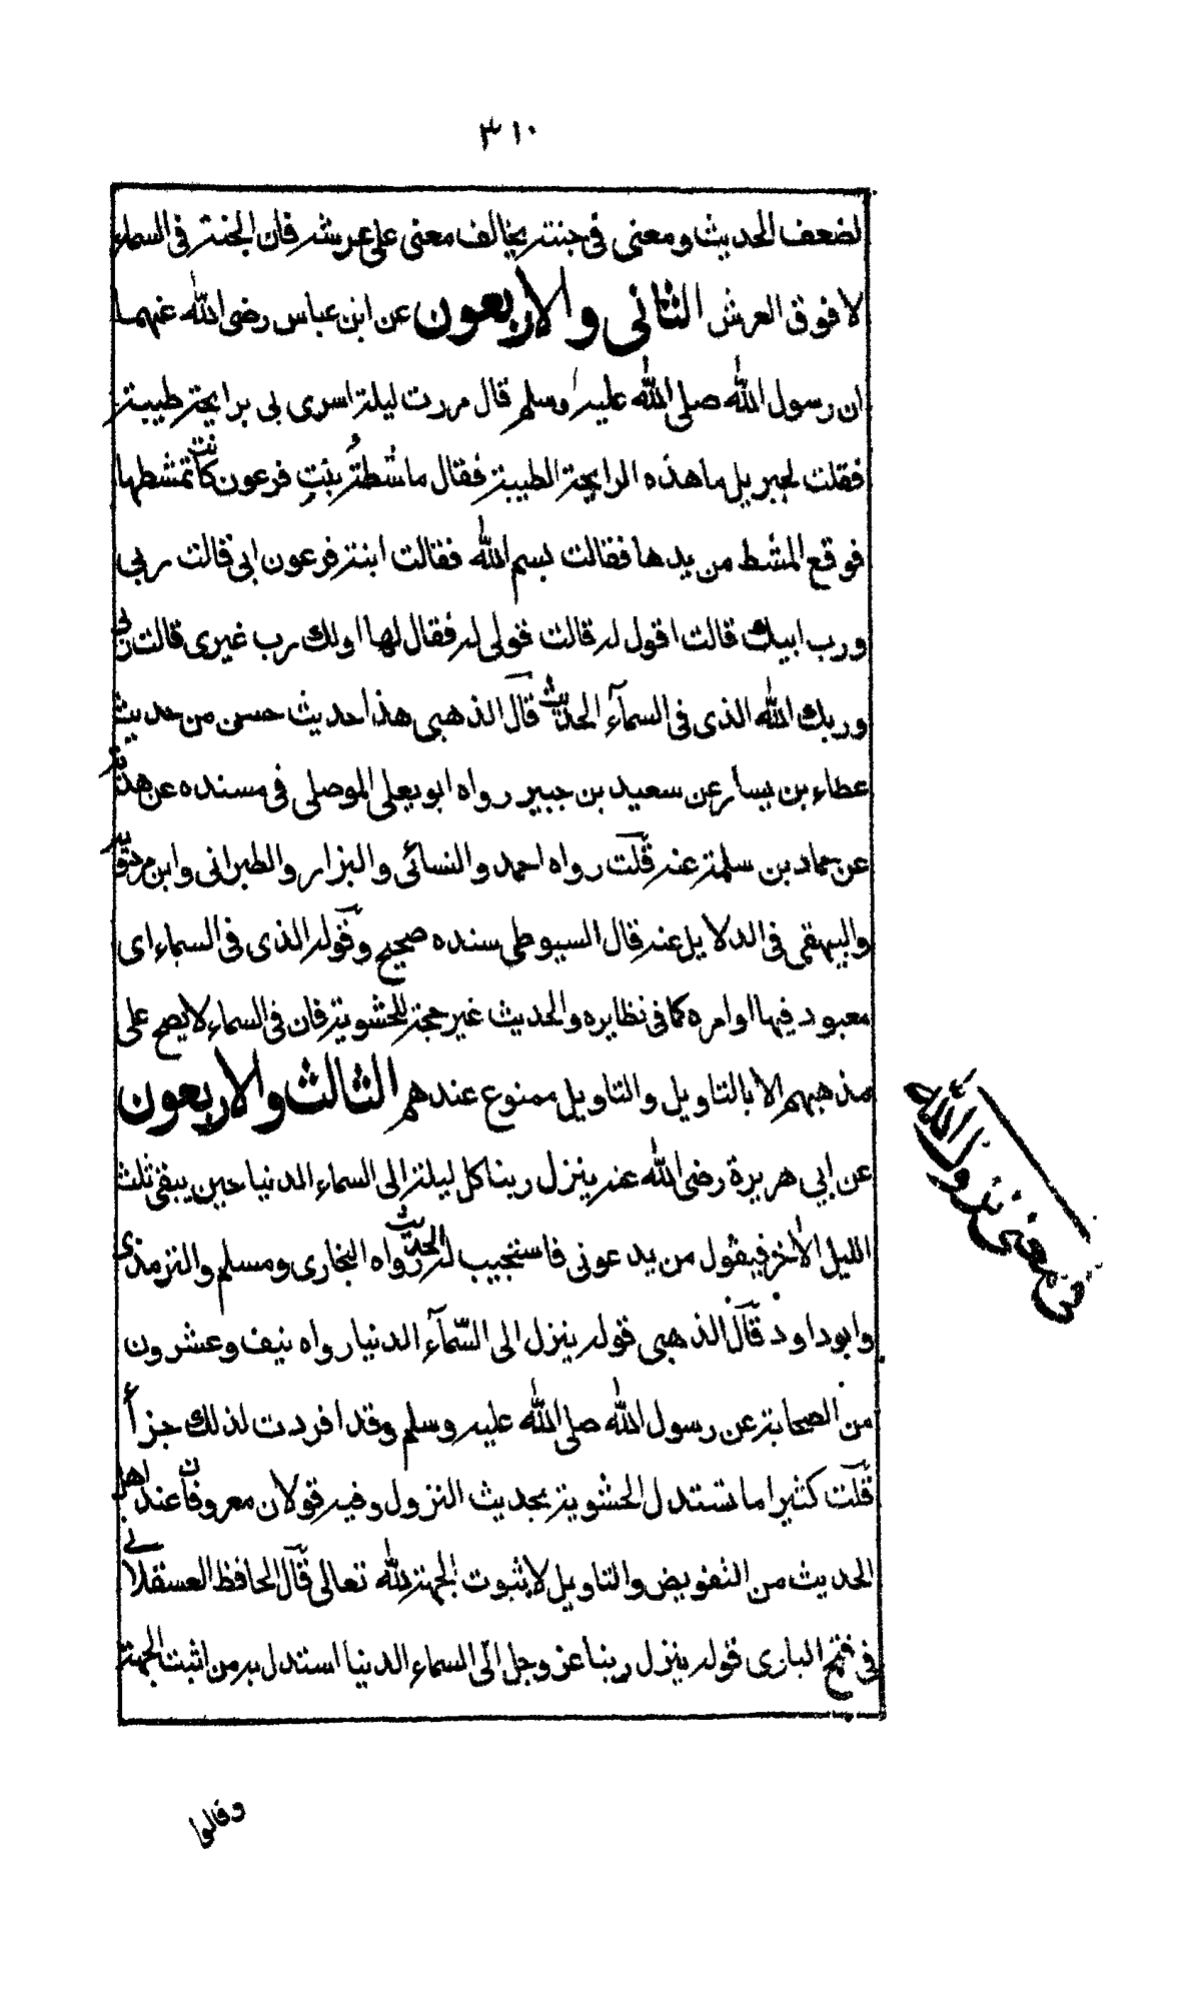 ٣١٠
لضعف الحديث ومعنى في جنته يخالف معنى على عرشه فان الجنة في السماء
لا فوق العرش الثاني والاربعون عن ابن عباس رضى الله عنهما
ان رسول الله صلى الله عليه وسلم قال مررت ليلة اسرى بي برايحة طيبة
فقلت لجبريل ما هذه الرايحة الطيبة فقال ماشطةُ بنتِ فرعون كانت تمشطها
فوقع المشط من يدها فقالت بسم الله فقالت ابنة فرعون ابى قالت ربى
ورب ابيك قالت اقول له قالت قولى له فقال لها اولك رب غيرى قالت ربى
وربك الله الذى فى السمآء الحديث قال الذهبى هذا حديث حسن من حديث
عطاء بن يسار عن سعيد بن جبير رواه ابو يعلى الموصلى فى مسنده عن هدبة
عن حماد بن سلمة عنه قلت رواه احمد والنسائى والبزار والطبرانى وابن مردويه
والبيهقى فى الدلايل عنه قال السيوطى سنده صحيح وقوله الذى فى السماء اى
معبود فيها او امره كما فى نظايره والحديث غير حجة للحشوية فان فى السماء لا يصح على
مذهبهم الا بالتاويل والتاويل ممنوع عندهم الثالث والاربعون
عن ابي هريرة رضى الله عنه ينزل ربنا كل ليلة الى السماء الدنيا حين يبقى ثلث
الليل الاخر فيقول من يدعونى فاستجيب له الحديث رواه البخارى ومسلم والترمذى
وابو داود قال الذهبى قوله ينزل الى السّمآء الدنيا رواه نيف وعشرون
من الصحابة عن رسول الله صلى الله عليه وسلم وقد افردت لذلك جزأ
قلت كثيرا ما تستدل الحشوية بحديث النزول وفيه قولان معروفان عند اهل
الحديث من التفويض والتاويل لا ثبوت الجهة لله تعالى قال الحافظ العسقلانى
فى فتح البارى قوله ينزل ربنا عز وجل الى السماء الدنيا استدل به من اثبت الجهة
فى معنى نزول الله
وقالوا